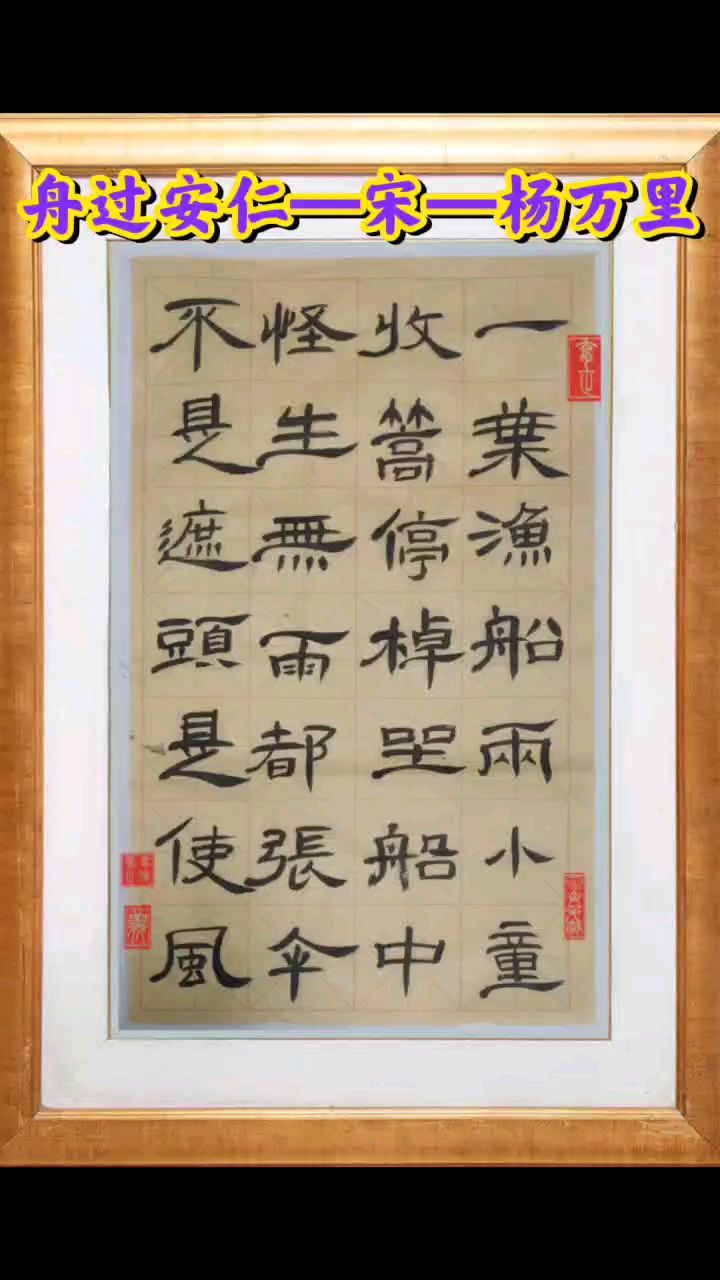 舟过安仁—宋—杨万里
一葉漁船兩小童
收篙停棹坐船中
怪生無雨都張傘
不是遮頭是使風